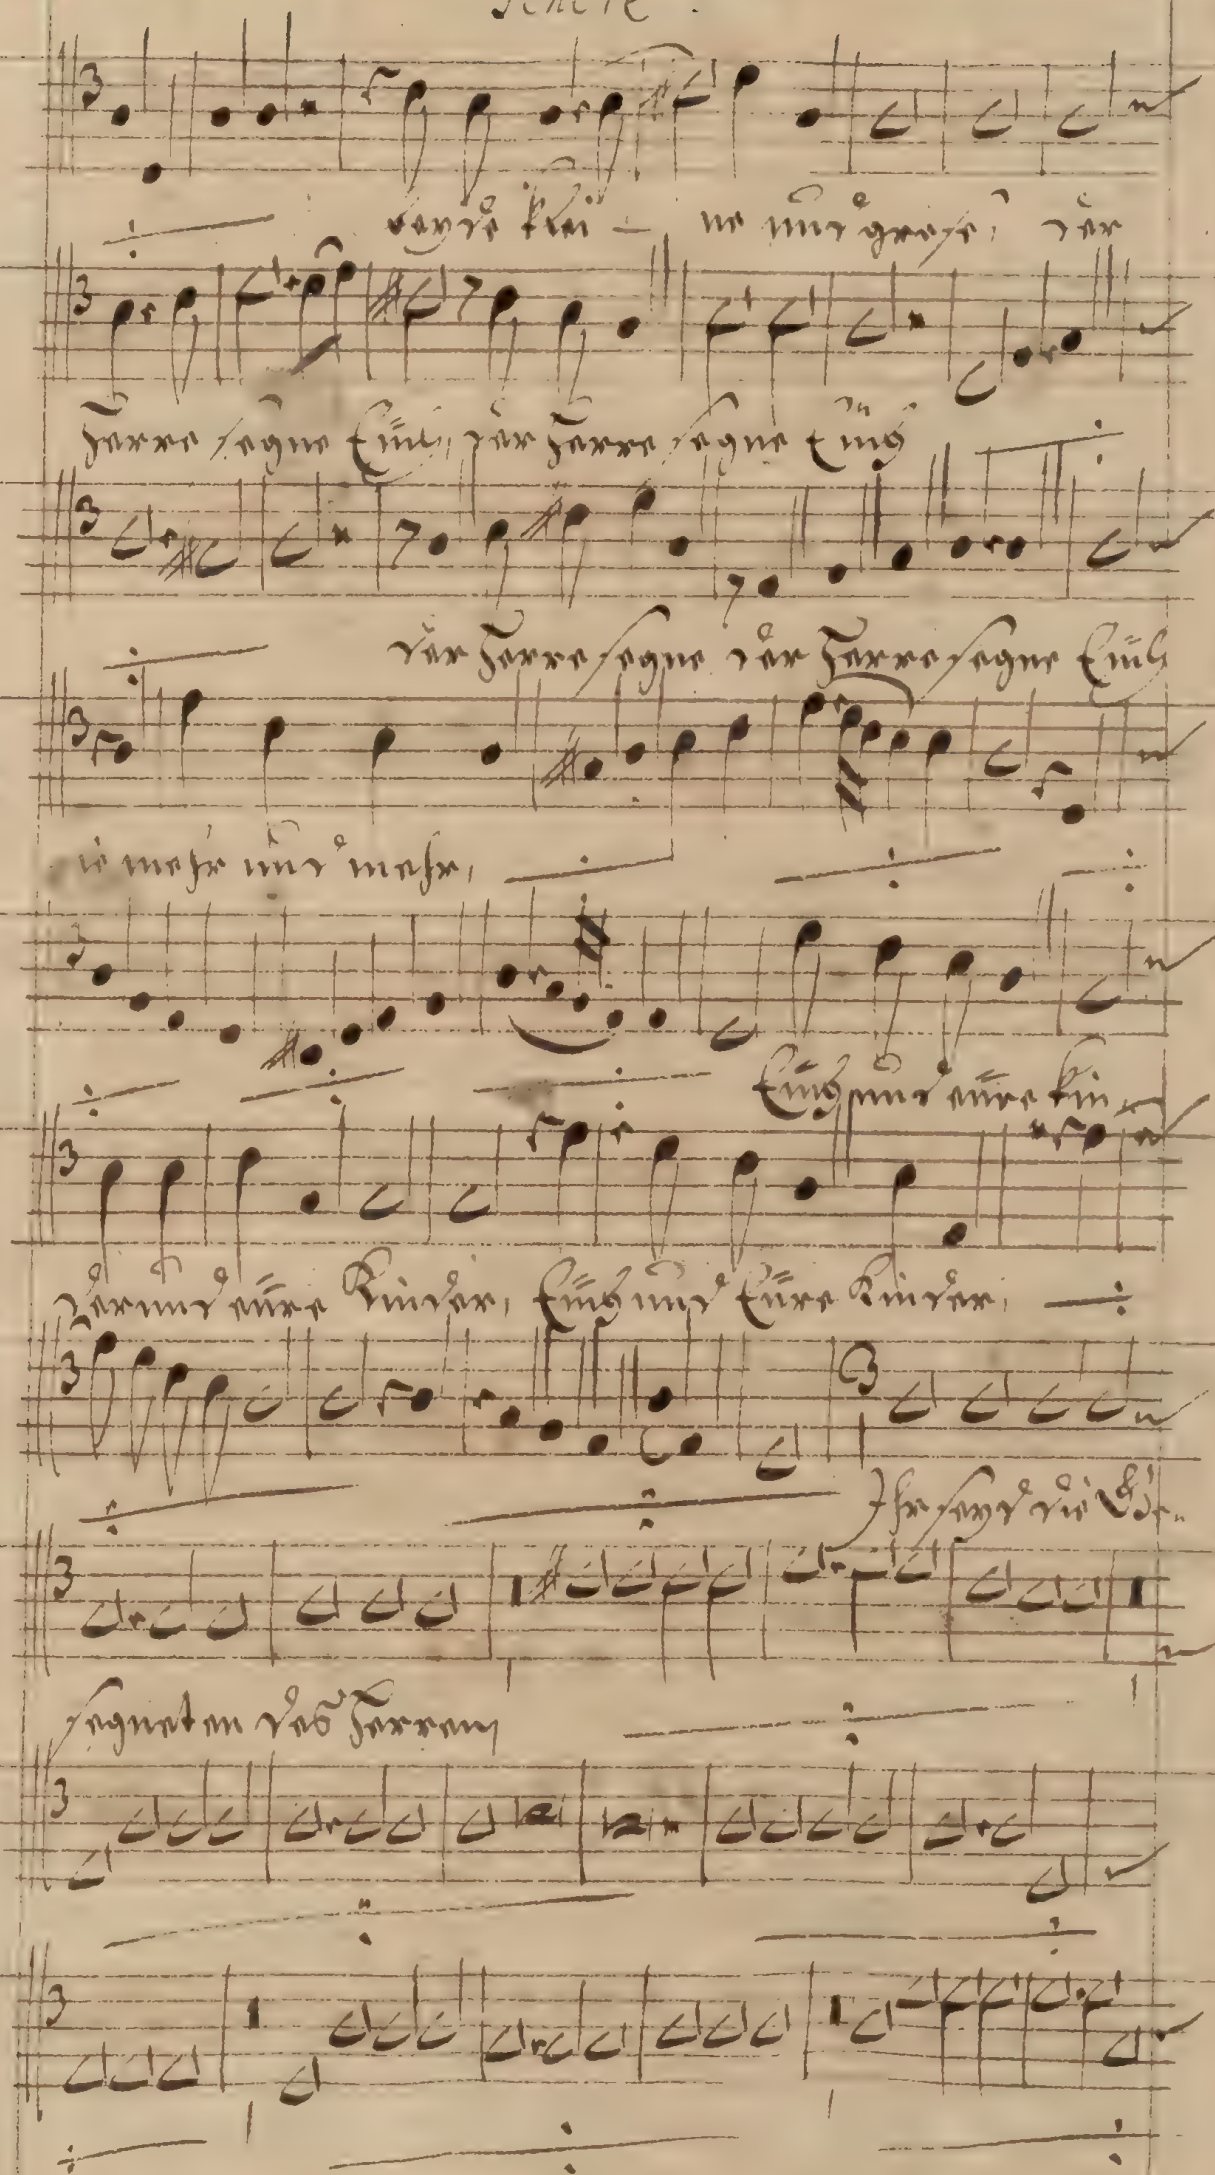 beyde klei - ne und grose, der
Herre segne Euch, der Herre segne Euch
der Herre segne der Herre segne Euch
ie mehr und mehr,
Euch und eure Kin-
der und eure Kinder, Euch und Eure Kinder,
Ihr seyd die Ge-
segneten des Herren,